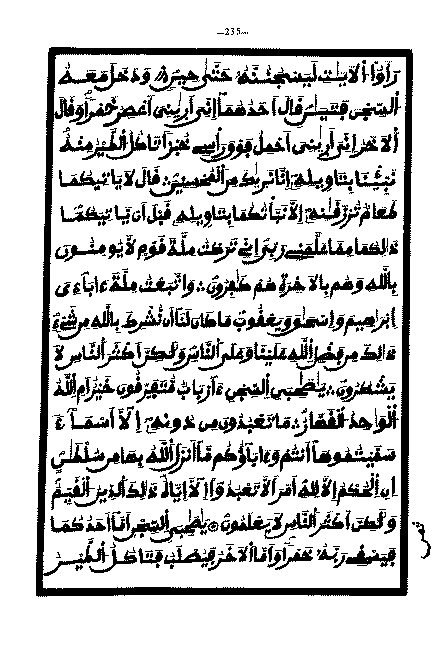 —235—
رَأَوُاْ الَايَٰتِ لَيَسْجُنُنَّهُۥ حَتَّىٰ حِينٖ وَدَخَلَ مَعَهُ
السِّجْنَ فَتَيَٰنِ قَالَ أَحَدُهُمَا إِنِّيَ أَرَىٰنِيَ أَعْصِرُ خَمْراً وَقَالَ
اَلَاخَرُ إِنِّيَ أَرَىٰنِيَ أَحْمِلُ فَوْقَ رَأْسِي خُبْزاً تَأْكُلُ الطَّيْرُ مِنْهُ
نَبِّئْنَا بِتَأْوِيلِهِۦ إِنَّا نَرَىٰكَ مِنَ الْمُحْسِنِينَ قَالَ لَا يَأْتِيكُمَا
طَعَامٌ تُرْزَقَٰنِهِۦ إِلَّا نَبَّأْتُكُمَا بِتَأْوِيلِهِۦ قَبْلَ أَنْ يَأْتِيَكُمَا
ذَٰلِكُمَا مِمَّا عَلَّمَنِي رَبِّيَ إِنِّي تَرَكْتُ مِلَّةَ قَوْمٍ لَا يُومِنُونَ
بِاللَّهِ وَهُم بِالَاخِرَةِ هُمْ كَٰفِرُونَ وَاتَّبَعْتُ مِلَّةَ ءَابَاءِيَ
إِبْرَٰهِيمَ وَإِسْحَٰقَ وَيَعْقُوبَ مَا كَانَ لَنَا أَن نُّشْرِكَ بِاللَّهِ مِن شَيْءٍ
ذَٰلِكَ مِن فَضْلِ اللَّهِ عَلَيْنَا وَعَلَى النَّاسِ وَلَٰكِنَّ أَكْثَرَ النَّاسِ لَا
يَشْكُرُونَ يَٰصَٰحِبَيِ السِّجْنِ ءَآرْبَابٌ مُّتَفَرِّقُونَ خَيْرٌ أَمِ اللَّهُ
الْوَٰحِدُ الْقَهَّارُ مَا تَعْبُدُونَ مِن دُونِهِۦ إِلَّا أَسْمَاءً
سَمَّيْتُمُوهَا أَنتُمْ وَءَابَاؤُكُم مَّا أَنزَلَ اللَّهُ بِهَا مِن سُلْطَٰنٍ
اِنِ الْحُكْمُ إِلَّا لِلَّهِ أَمَرَ أَلَّا تَعْبُدُواْ إِلَّا إِيَّاهُ ذَٰلِكَ الدِّينُ الْقَيِّمُ
وَلَٰكِنَّ أَكْثَرَ النَّاسِ لَا يَعْلَمُونَ يَٰصَٰحِبَيِ السِّجْنِ أَمَّا أَحَدُكُمَا
فَيَسْقِي رَبَّهُۥ خَمْراً وَأَمَّا الَاخَرُ فَيُصْلَبُ فَتَأْكُلُ الطَّيْرُ
ثمن